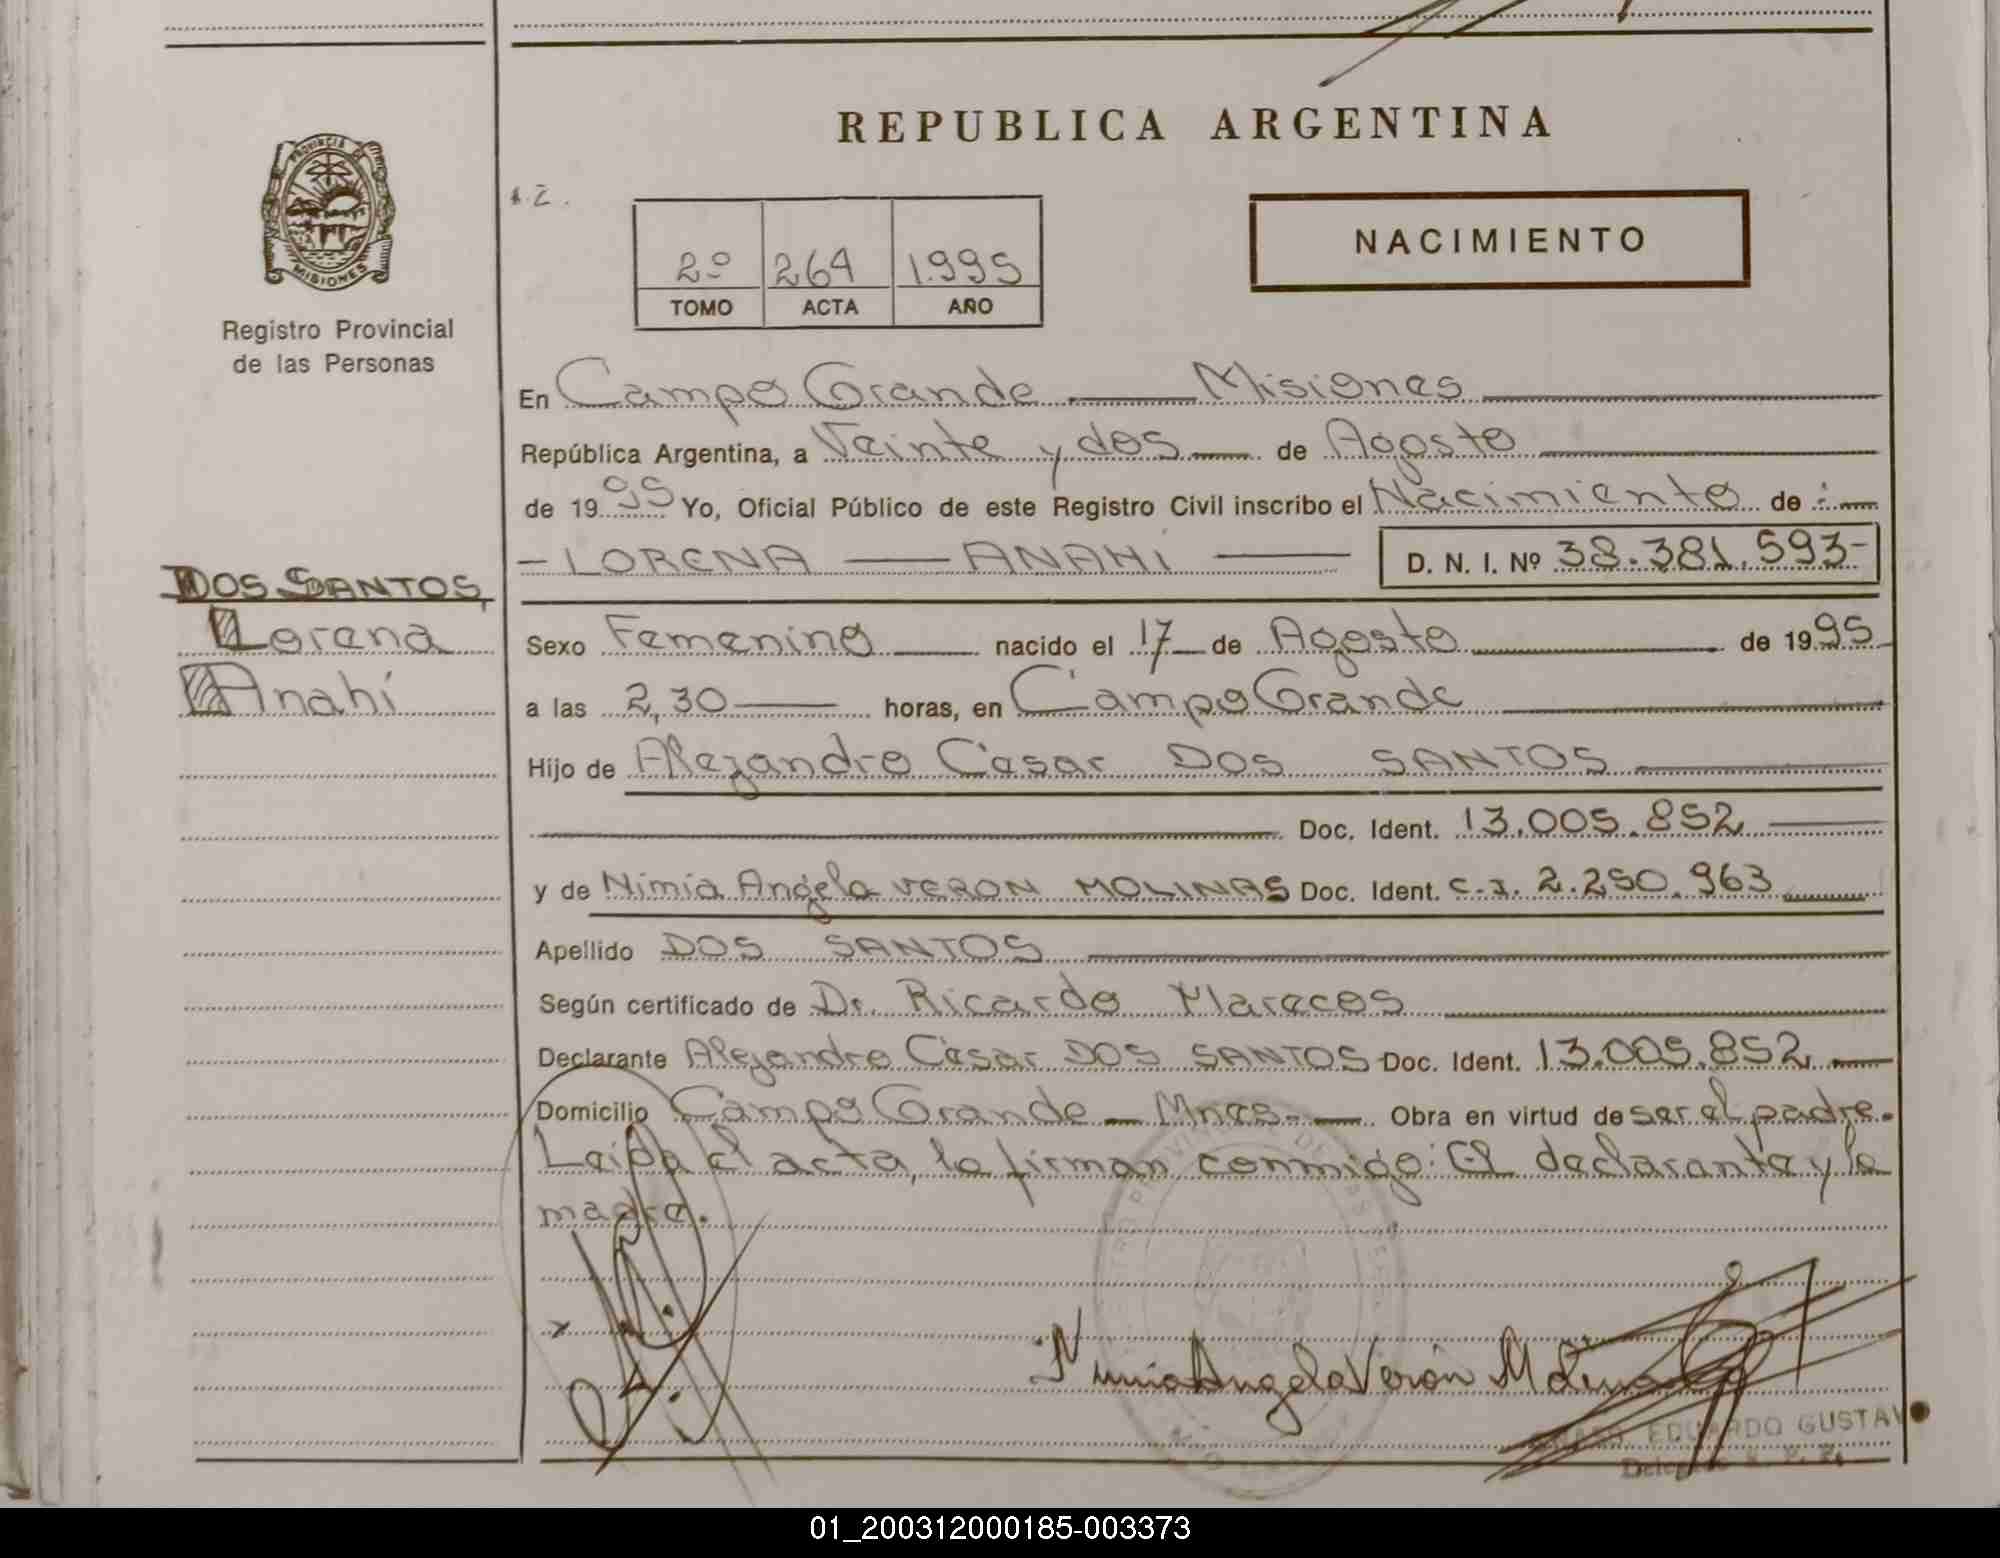 REPUBLICA ARGENTINA
PROVINCIA D
MISIONES
Registro Provincial
de las Personas
2º 264 1.995
TOMO ACTA AÑO
NACIMIENTO
En Campo Grande — Misiones
República Argentina, a Veinte y dos — de Agosto
de 1995 Yo, Oficial Público de este Registro Civil inscribo el Nacimiento de :—
- LORENA — ANAHI — D. N. I. Nº 38.381.593-
DOS SANTOS,
Lorena
Anahí
Sexo Femenino — nacido el 17 — de Agosto de 1995
a las 2,30 — horas, en Campo Grande
Hijo de Alejandro Cesar DOS SANTOS
Doc. Ident. 13.005.852
y de Nimia Angela VERON MOLINAS Doc. Ident. C.I. 2.250.963
Apellido DOS SANTOS
Según certificado de Dr. Ricardo Marecos
Declarante Alejandro Cesar DOS SANTOS Doc. Ident. 13.005.852
Domicilio Campo Grande — Mnes. — Obra en virtud de ser el padre.
Leida el acta, la firman conmigo: El declarante y la
madre.
Nimia Angela Verón Molinas
EDUARDO GUSTAV
01_200312000185-003373